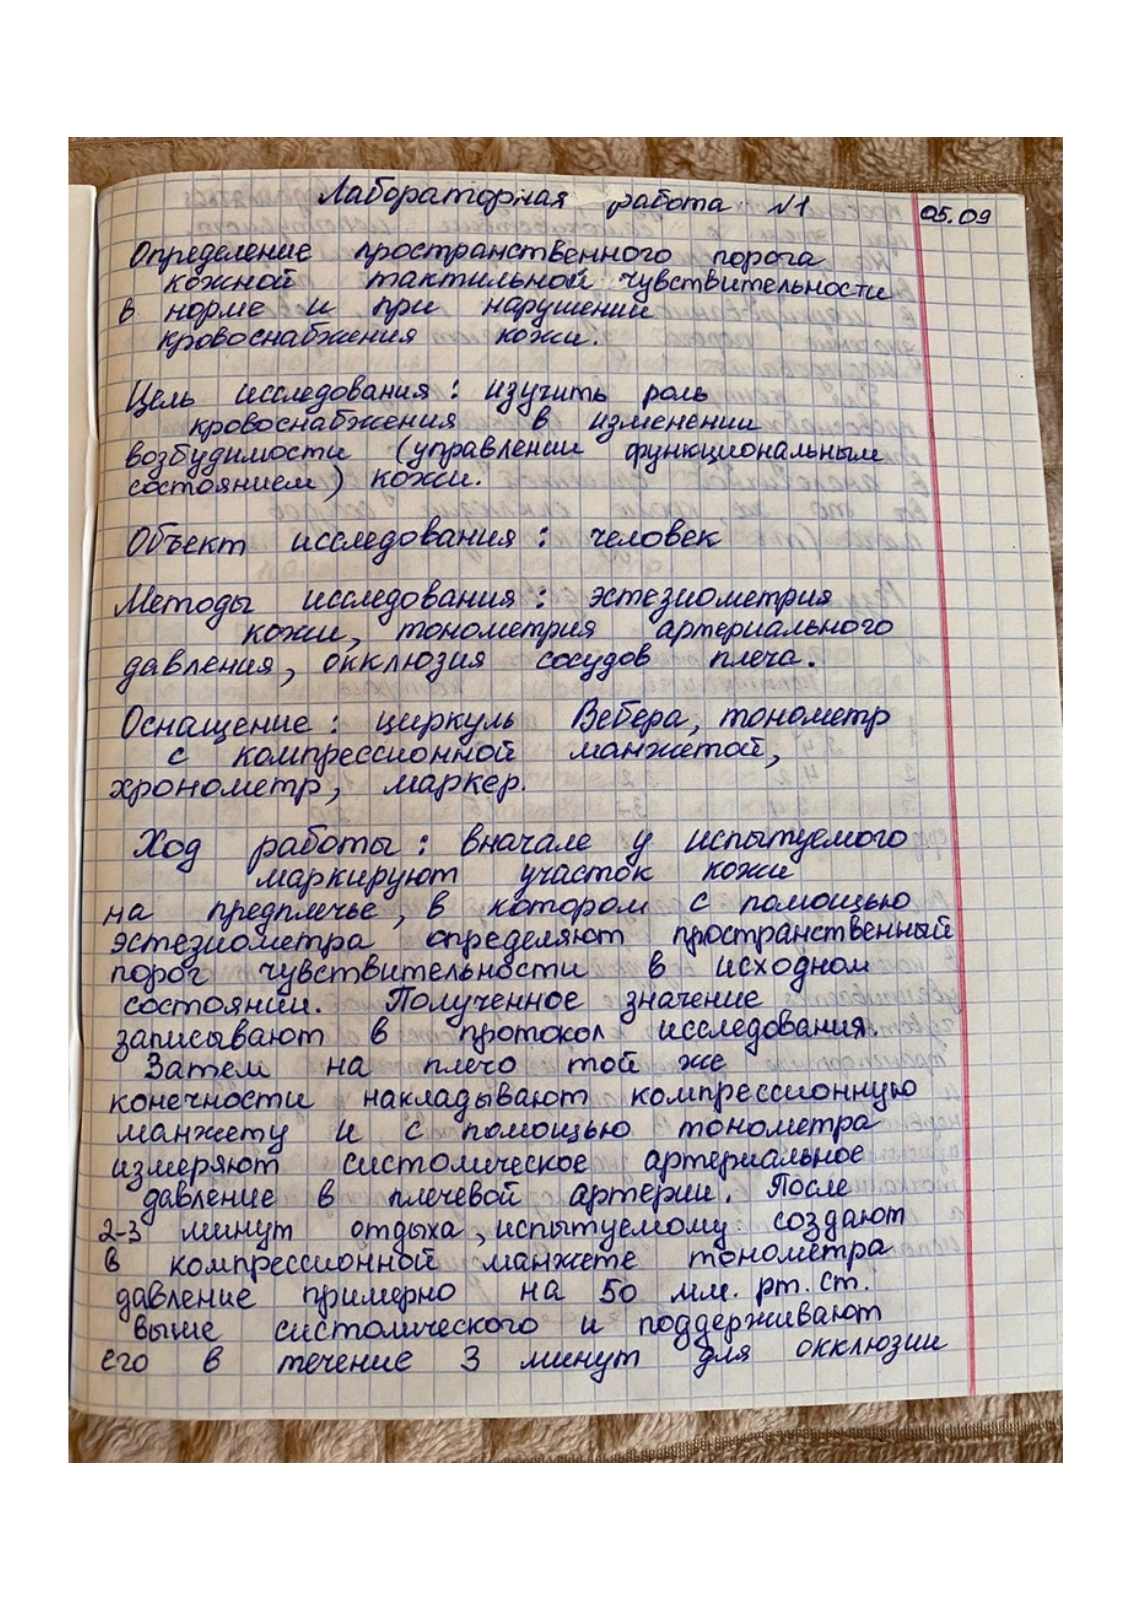 Лабораторная работа №1
05.09
Определение пространственного порога
кожной тактильной чувствительности
в норме и при нарушении
кровоснабжения кожи.
Цель исследования: изучить роль
кровоснабжения в изменении
возбудимости (управлении функциональным
состоянием) кожи.
Объект исследования: человек
Методы исследования: эстезиометрия
кожи, тонометрия артериального
давления, окклюзия сосудов плеча.
Оснащение: циркуль Вебера, тонометр
с компрессионной манжетой,
хронометр, маркер.
Ход работы: вначале у испытуемого
маркируют участок кожи
на предплечье, в котором с помощью
эстезиометра определяют пространственный
порог чувствительности в исходном
состоянии. Полученное значение
записывают в протокол исследования.
Затем на плечо той же
конечности накладывают компрессионную
манжету и с помощью тонометра
измеряют систолическое артериальное
давление в плечевой артерии. После
2-3 минут отдыха, испытуемому создают
в компрессионной манжете тонометра
давление примерно на 50 мм. рт. ст.
выше систолического и поддерживают
его в течение 3 минут для окклюзии